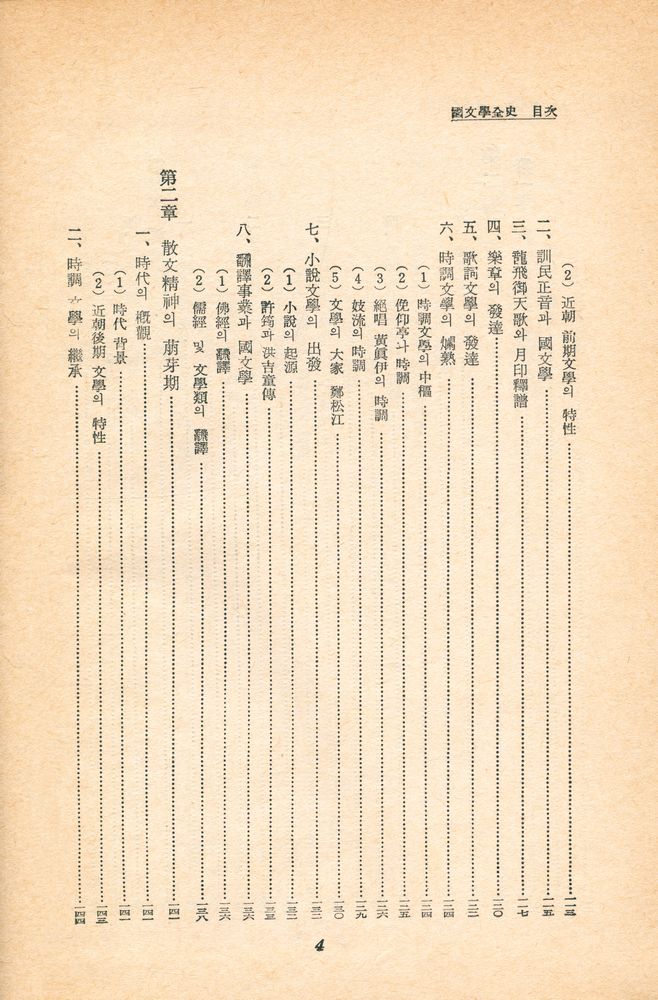 國文學全史 目次
(2) 近朝 前期文學의 特性 一一三
二、訓民正音과 國文學 一一五
三、龍飛御天歌와 月印釋譜 一一七
四、樂章의 發達 一二〇
五、歌詞文學의 發達 一二二
六、時調文學의 爛熟 一二四
(1) 時調文學의 中樞 一二四
(2) 俛仰亭과 時調 一二五
(3) 絕唱 黃眞伊의 時調 一二六
(4) 妓流의 時調 一二九
(5) 文學의 大家 鄭松江 一三〇
七、小說文學의 出發 一三二
(1) 小說의 起源 一三二
(2) 許筠과 洪吉童傳 一三三
八、飜譯事業과 國文學 一三六
(1) 佛經의 飜譯 一三六
(2) 儒經 및 文學類의 飜譯 一三八
第二章 散文精神의 萠芽期 一四一
一、時代의 槪觀 一四一
(1) 時代 背景 一四一
(2) 近朝後期 文學의 特性 一四三
二、時調 文學의 繼承 一四四
4